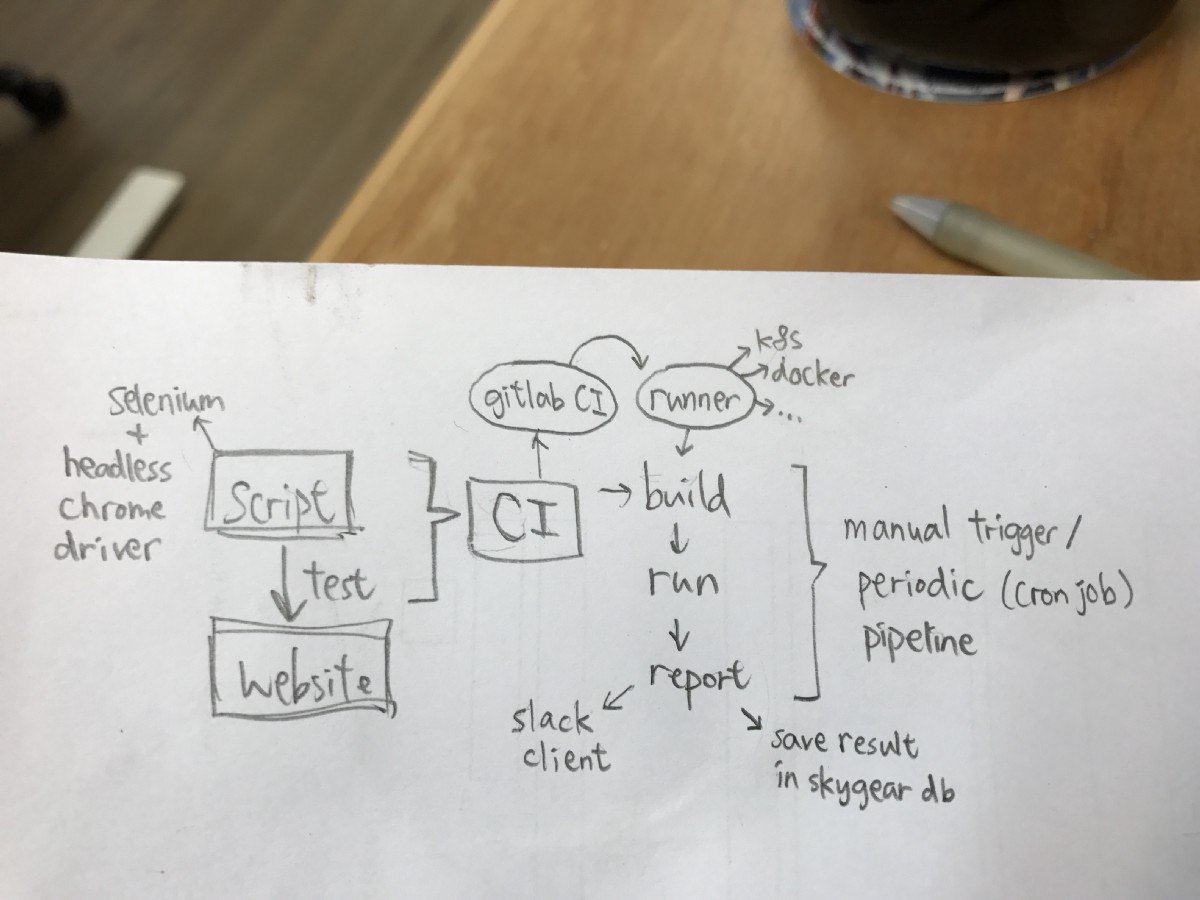 selenium
+
headless
chrome
driver
Script
test
website
gitlab CI
CI
runner
k8s
docker
...
build
run
report
slack
client
save result
in skygear db
manual trigger /
periodic (cron job)
pipeline